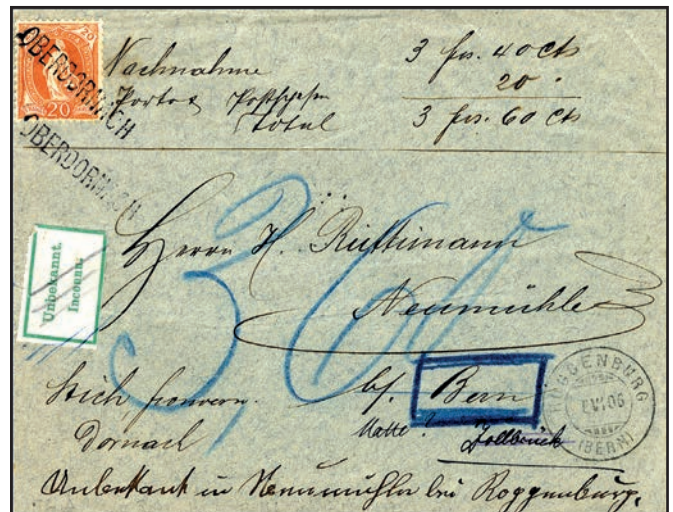 20
OBERDORNACH
OBERDORNACH
Nachnahme 3 frs. 40 cts
Porto & 20
Total 3 frs. 60 cts
Unbekannt.
Inconnu.
Herrn H. Rüttimann
Neumühle
3,60
bj. Bern
Matte
Zollbrück
Dornach
ROGGENBURG
VI.06
(BERN)
Unbekannt in Neumühle bei Roggenburg.